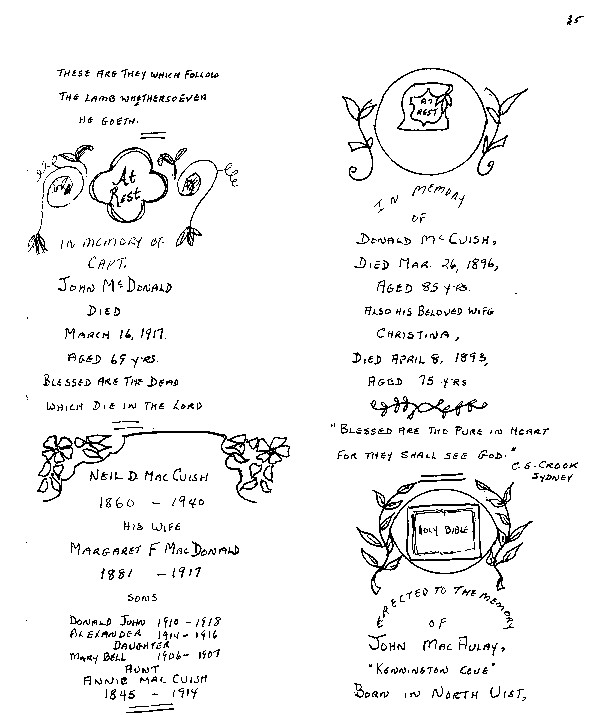 35
THESE ARE THEY WHICH FOLLOW
THE LAMB WHITHERSOEVER
HE GOETH.
At
Rest
IN MEMORY OF
CAPT.
JOHN McDONALD
DIED
MARCH 16, 1917.
AGED 69 YRS.
BLESSED ARE THE DEAD
WHICH DIE IN THE LORD
NEIL D. MAC CUISH
1860 - 1940
HIS WIFE
MARGARET F MACDONALD
1881 - 1917
SONS
DONALD JOHN 1910 - 1918
ALEXANDER 1914 - 1916
DAUGHTER
MARY BELL 1906 - 1907
AUNT
ANNIE MAC CUISH
1845 - 1914
AT
REST
IN MEMORY
OF
DONALD McCUISH,
DIED MAR. 26, 1896,
AGED 85 YRS.
ALSO HIS BELOVED WIFE
CHRISTINA,
DIED APRIL 8, 1893,
AGED 75 YRS
"BLESSED ARE THE PURE IN HEART
FOR THEY SHALL SEE GOD."
C.E. CROOK
SYDNEY
HOLY BIBLE
ERECTED TO THE MEMORY
OF
JOHN MACAULAY,
"KENNINGTON COVE"
BORN IN NORTH UIST,